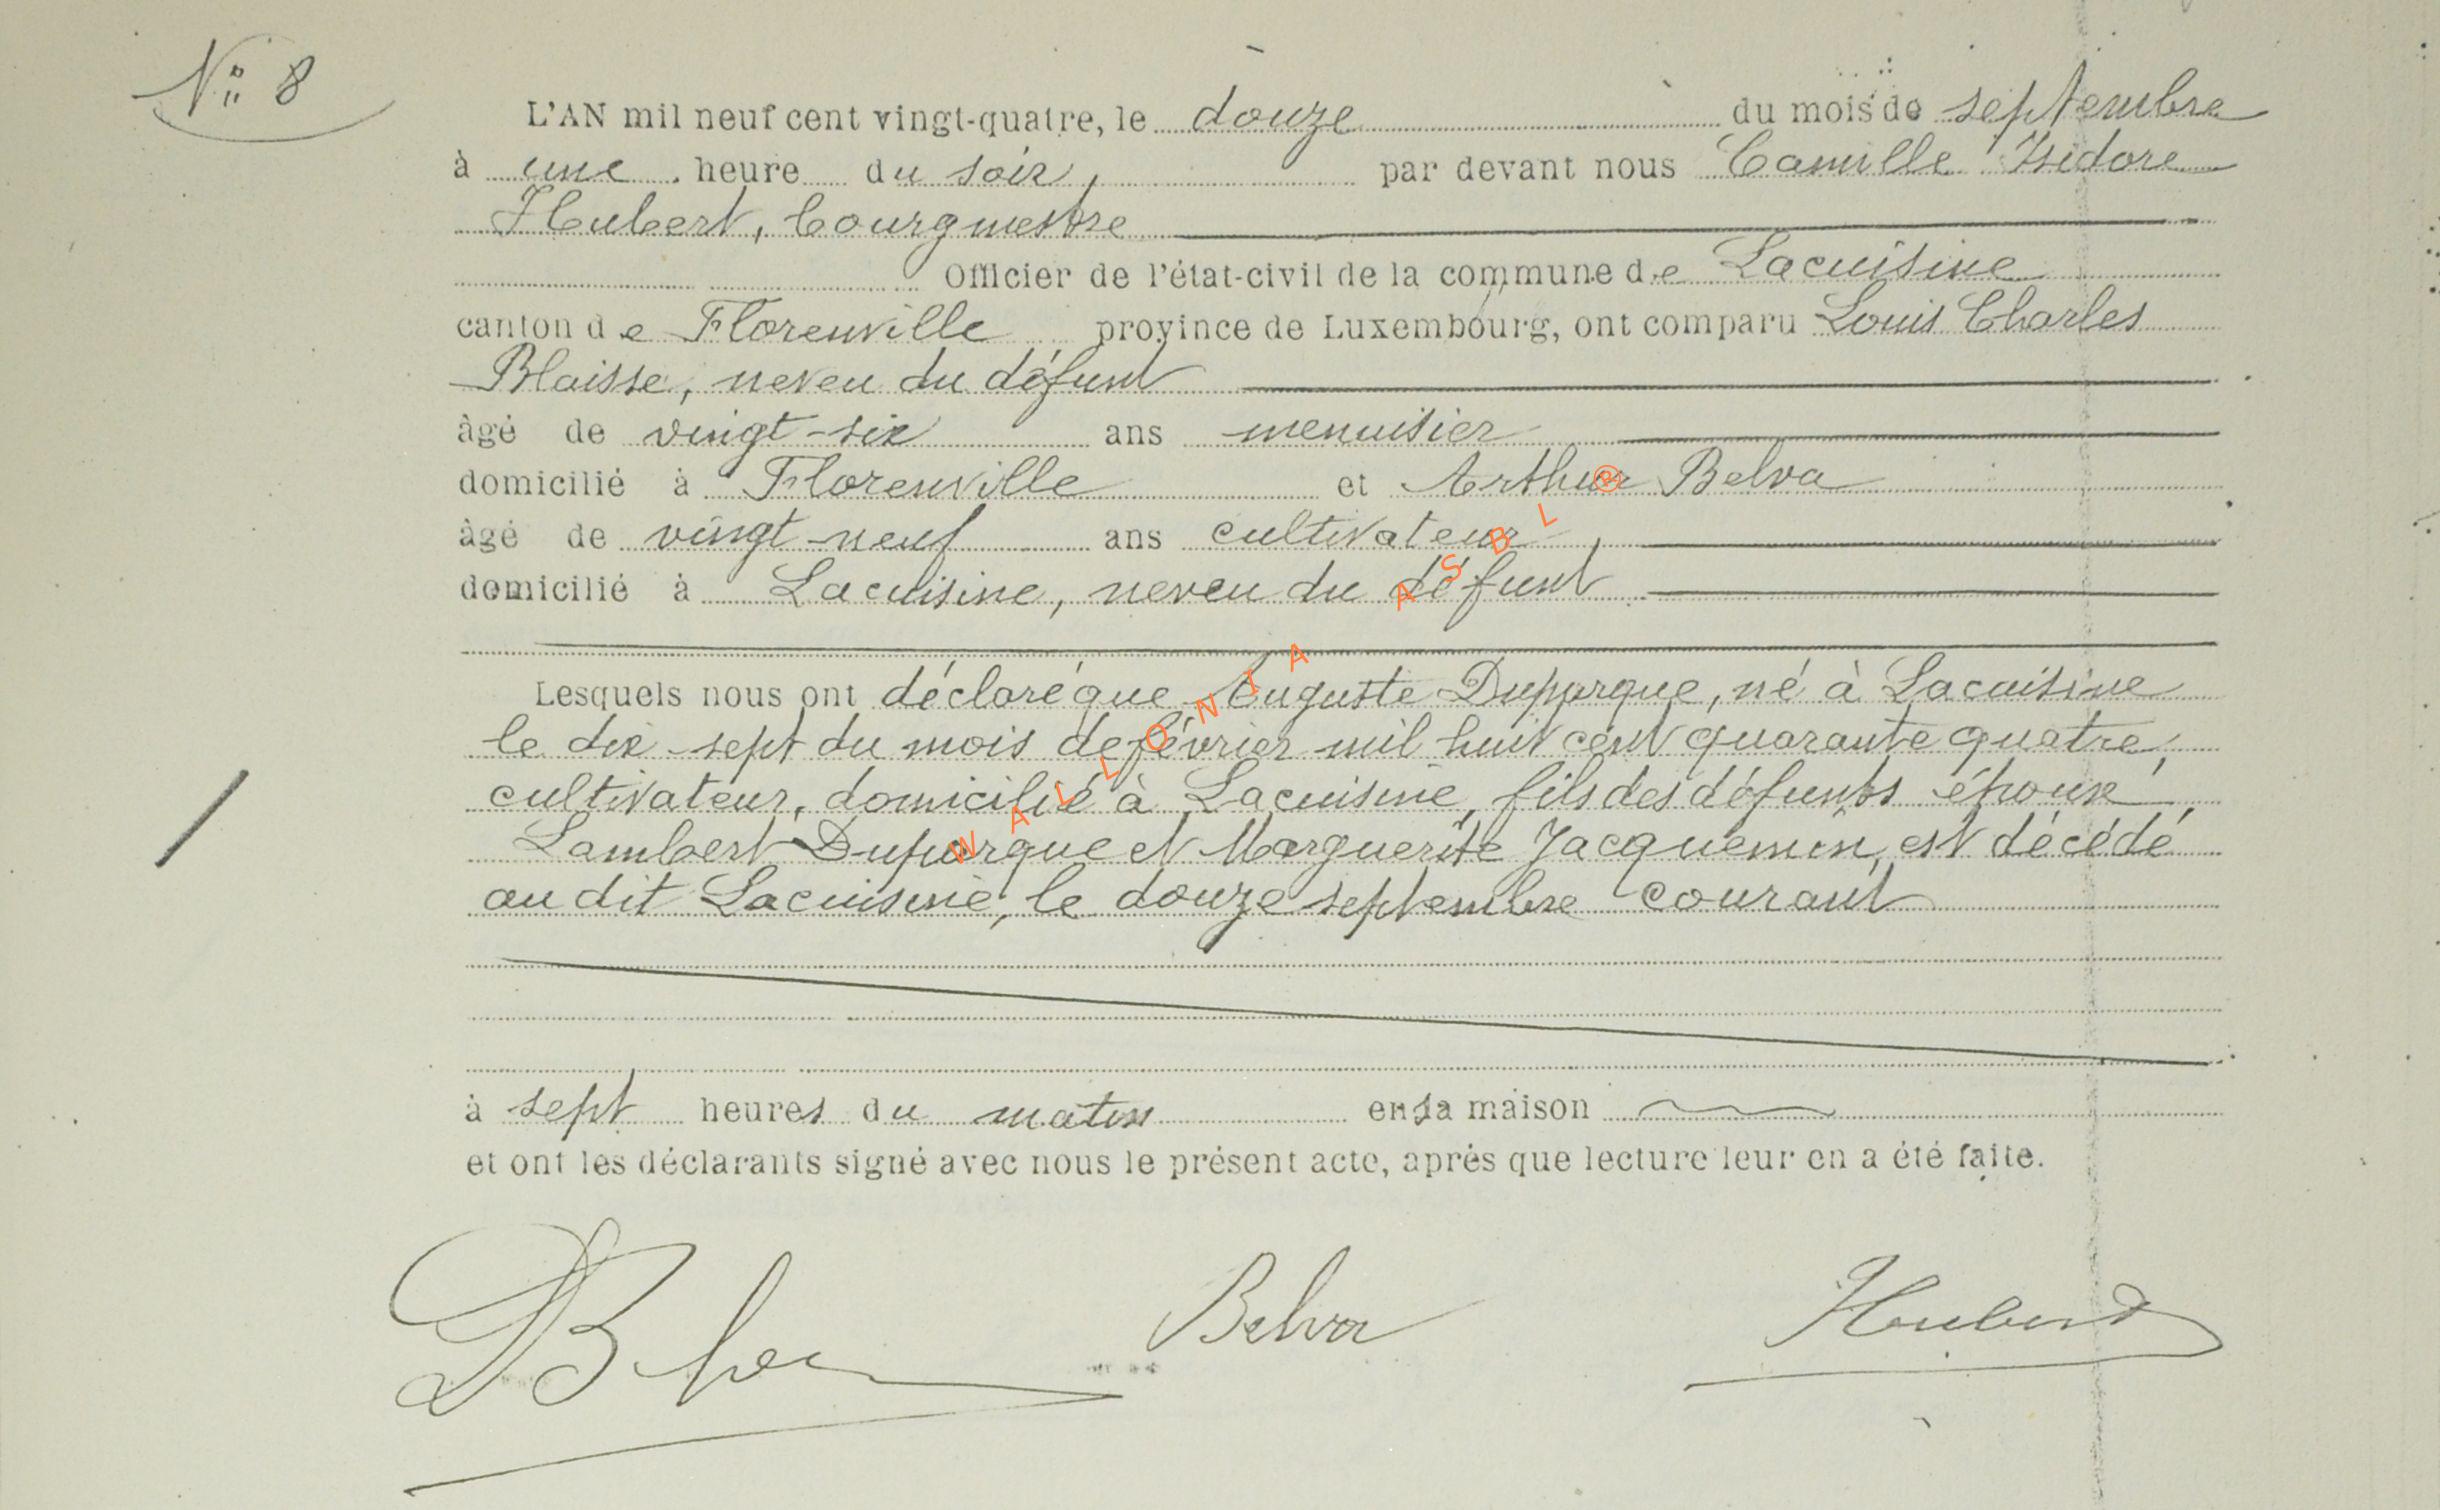 N° 8
L'AN mil neuf cent vingt-quatre, le douze du mois de septembre
à une heure du soir, par devant nous Camille Isidore
Hubert, bourgmestre
Officier de l'état-civil de la commune de Lacuisine
canton de Florenville province de Luxembourg, ont comparu Louis Charles
Blaisse, neveu du défunt
âgé de vingt-six ans menuisier
domicilié à Florenville et Arthur Belva
âgé de vingt-neuf ans cultivateur,
domicilié à Lacuisine, neveu du défunt
Lesquels nous ont déclaré que Auguste Duparque, né à Lacuisine
le dix-sept du mois de février mil huit cent quarante quatre,
cultivateur, domicilié à Lacuisine, fils des défunts époux
Lambert Duparque et Marguerite Jacquemin, est décédé
au dit Lacuisine, le douze septembre courant
à sept heures du matin en sa maison
et ont les déclarants signé avec nous le présent acte, après que lecture leur en a été faite.
Belva Hubert
WALLONIA ASBL ®